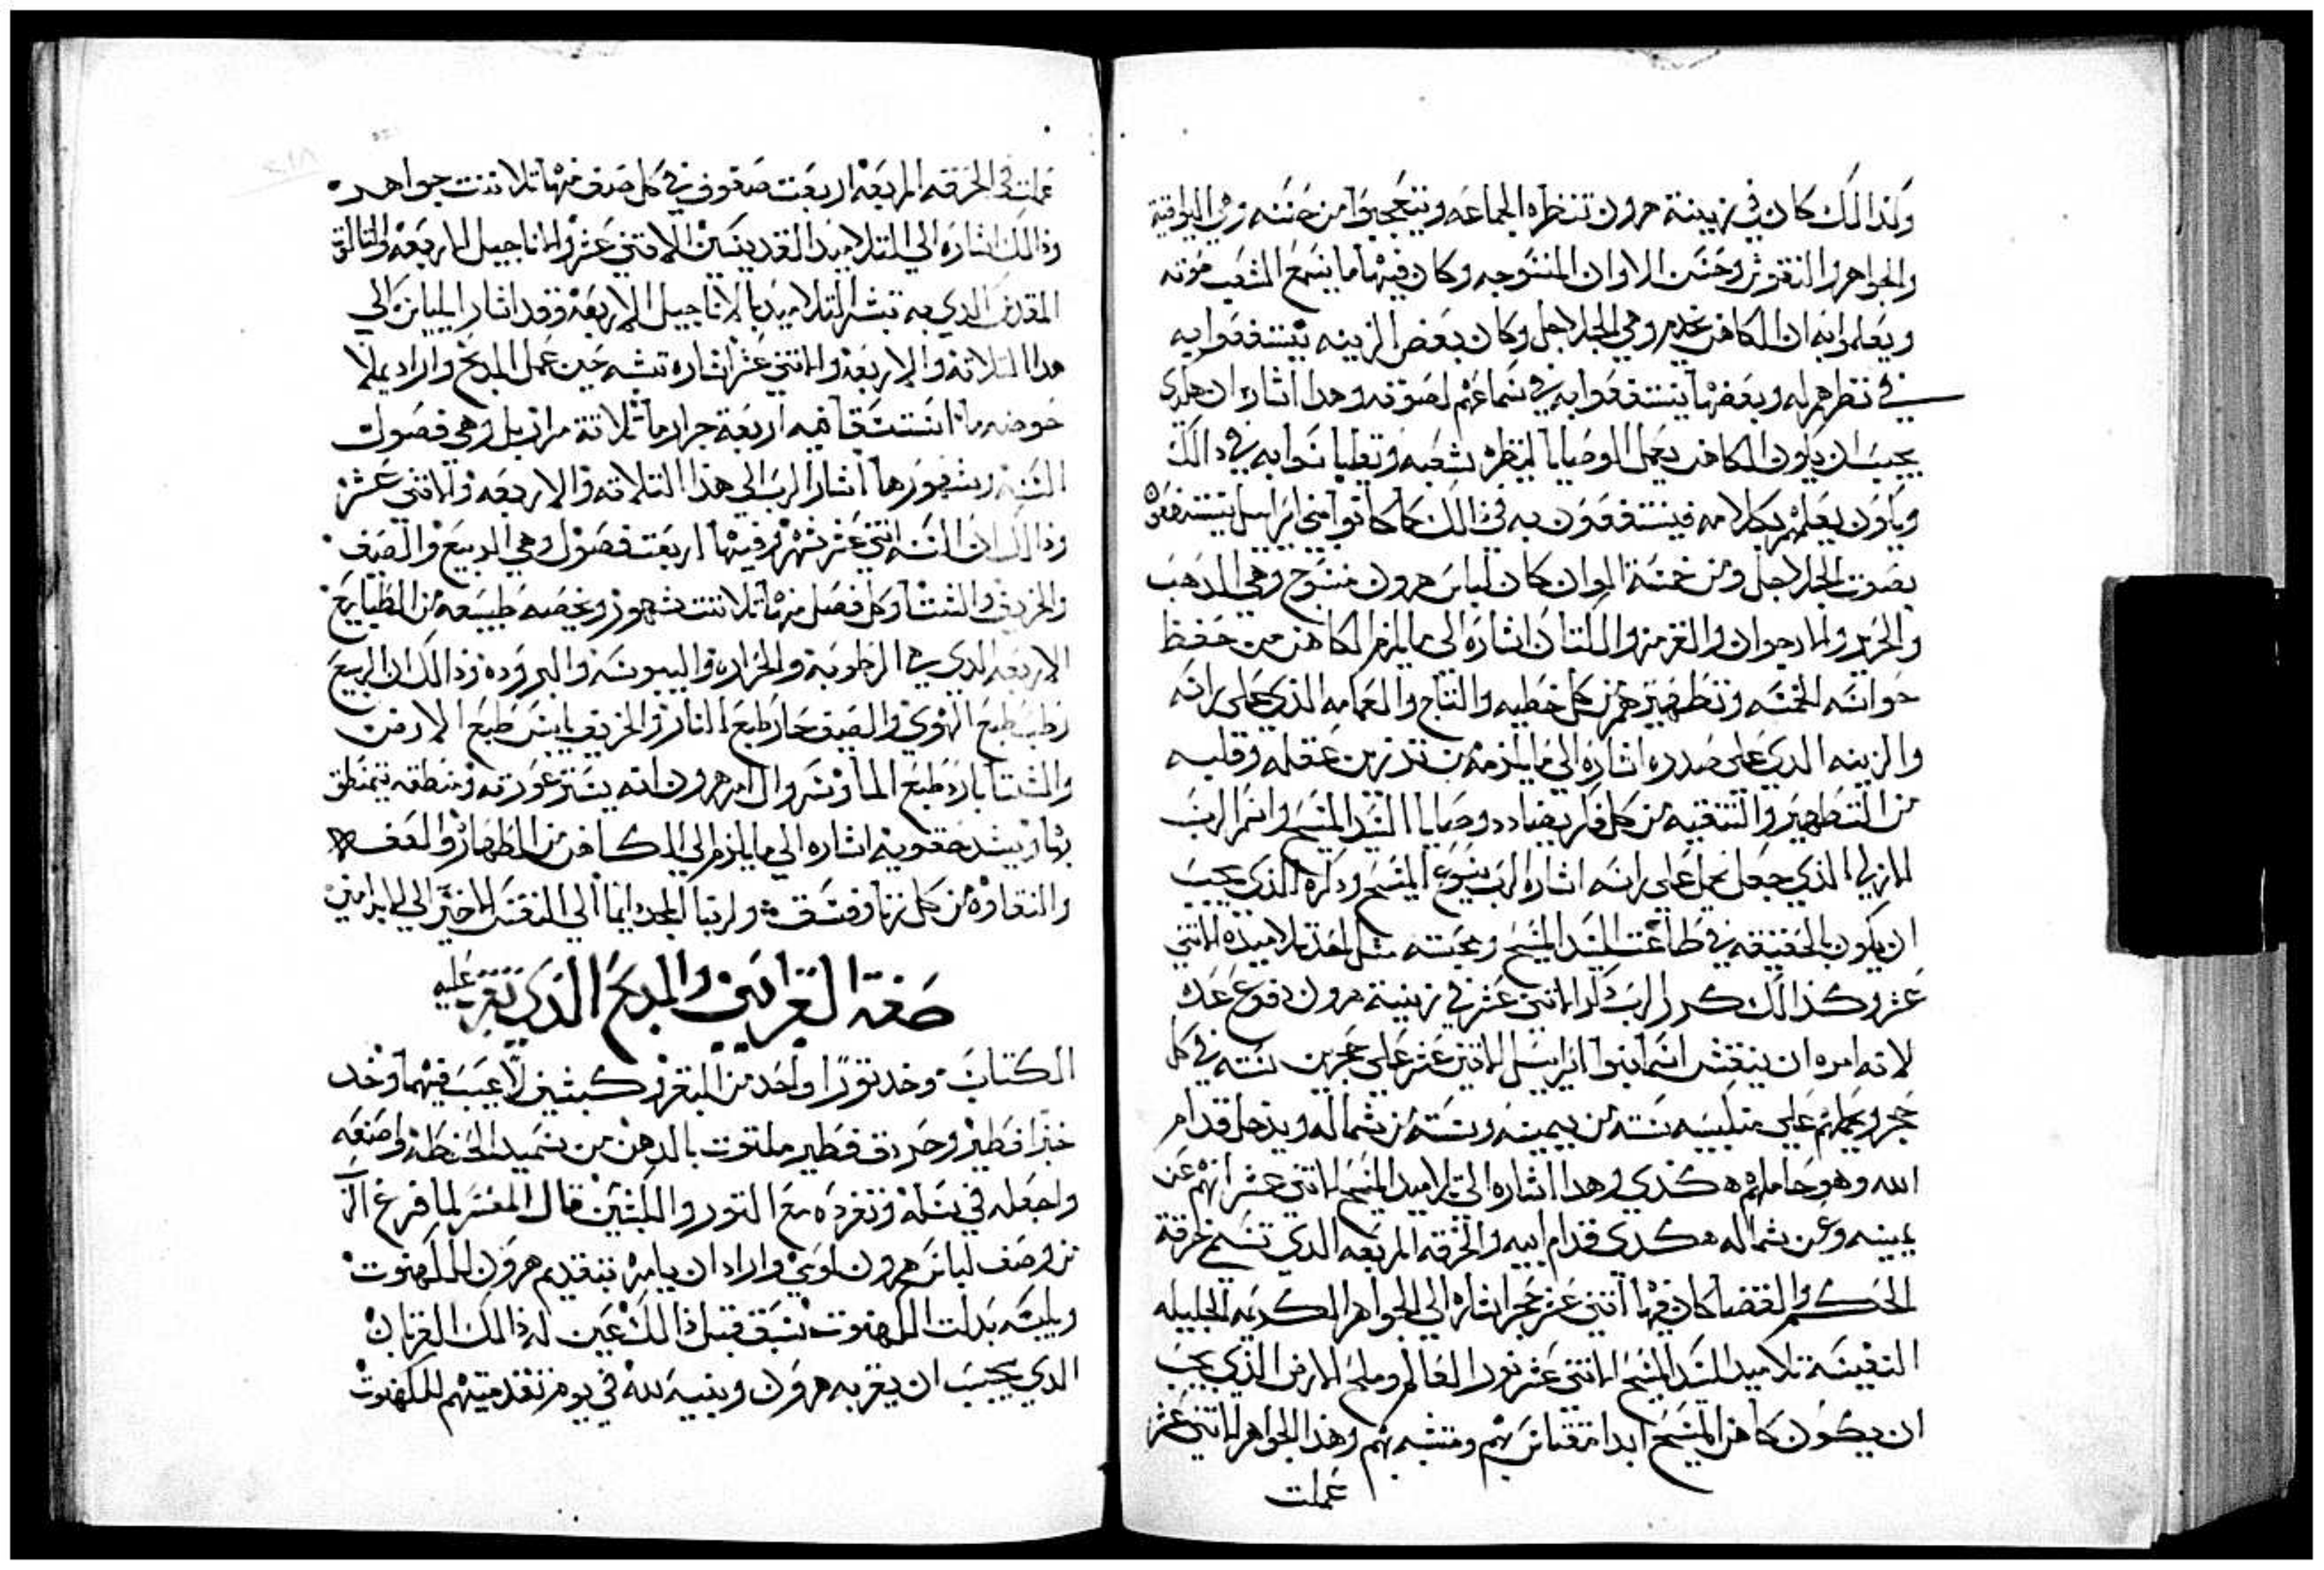 ولذالك كان في زينة هرون تنظره الجماعه ويتعجبوا من حسنه وهي اليواقيت
والجواهر والنقوش وحسن الاوان المنسوجه وكان فيها ما يسمع الشعب صوته
ويعلموا به ان الكاهن يخدم وهي الجلاجل وكان بعض الزينه ينتفعوا به
في نظرهم له وبعضها ينتفعوا به في سماعهم لصوته وهذا اشاره ان هكدي
يجب ان يكون الكاهن يعمل الوصايا لينظره شعبه به في دالك
ويكون يعلمهم بكلامه فينتفعون به في ذالك كما كانوا بني اسراييل ينتفعون
بصوت الجلاجل ومن خمسة الوان كان لباس هرون منسوج وهي الدهب
والحرير والارجوان والقرمز والكتان اشاره الى ما يلزم الكاهن من حفظ
حواسه الخمسه وتطهيرهم من كل خطيه والتاج والعمامه الذي على راسه
والزينه الدي على صدره اشاره الى ما يلزمه من تزين عقله وقلبه
من التطهير والتنقيه من كل فكر يضادد وصايا السيد المسيح واسم الرب
الازلي الذي جعل على راسه اشاره الرب يسوع المسيح ودكره الذي يجب
ان يكون بالحقيقه في طاعت السيد المسيح ومحبته مثل احد تلاميذه الاثني
عشر وكذالك كرر الرب ذكر الاثني عشر في زينة هرون
لانه امره ان ينقش اسما بنوا اسراييل الاثني عشر على حجرين سته في كل
حجر ويحملهم على منكبيه سته من يمينه وسته من شماله ويدخل قدام
الله وهو حاملهم هكدي وهدا اشاره الى تلاميد المسيح الاثني عشر انهم عن
يمينه وعن شماله هكدي قدام ابيه والخرقه المربعه الدي تسمى خرقة
الحكم والقضا كان فيها اثني عشر حجر اشاره الى الجواهر الكريمه الجليله
النفيسه تلاميد السيد المسيح الاثني عشر نور العالم وملح الارض الذي يجب
ان يكون كاهن المسيح ابدا بهم ومتشبه بهم وهذا الجواهر الاثني عشر
عملت
عملت في الخرقه المربعه اربعت صفوف في كل صف منها ثلاتت جواهر
وذالك اشاره الى التلاميد القديسين الاثني عشر والاناجيل الاربعه والثالوت
المقدس الدي به تبشر التلاميد بالاناجيل الاربعه وقد اشار ايليا الى
هدا الثلاته والاربعه والاثني عشر اشاره تشبه حين عمل المدبح واراد يملا
حوضه ما فيه اربعة جرار ما ثلاتة مرار بل وهي فصول
السنه وشهورها اشار الرب الى هذا الثلاته والاربعه والاثني عشر
وذالك ان السنه اثني عشر شهر وفيها اربعت فصول وهي الربيع والصيف
والخريف والشتا وكل فصل منها ثلاتت شهور ويخصه طبيعه من الطبايع
الاربعه الدي هي الرطوبه والحراره واليبوسه والبروده وذالك ان الربيع
رطب طبع الهوي والصيف حار طبع النار والخريف يابس طبع الارض
والشتا بارد طبع الما وسروال امر هرون انه يستر عورته ومنطقه يتمنطق
بها ويشد حقويه اشاره الى ما يلزم الى الكاهن من الطهاره والعفه
والنقاوه من كل زنا وفسق ولربنا المجد دايما الى النفس الاخير الى الابد امين
صفة القرابين والمدبح الدي تقرب عليه
الكتاب وخد ثورا واحد من البقر وكبشين لا عيب فيهما وخد
خبزا فطير وجردق فطير ملتوت بالدهن من سميد الحنطه واصنعه
واجعله في سله وتقرده مع الثور والكبشين قال المفسر لما فرغ الله
من وصف لباس هرون واراد ان يامره بتقديم هرون للكهنوت
ويلبسه بدلت الكهنوت سبق قبل ذالك عين له ذالك القربان
الدي يجب ان يقربه هرون وبنيه لله في يوم تقدمتهم للكهنوت